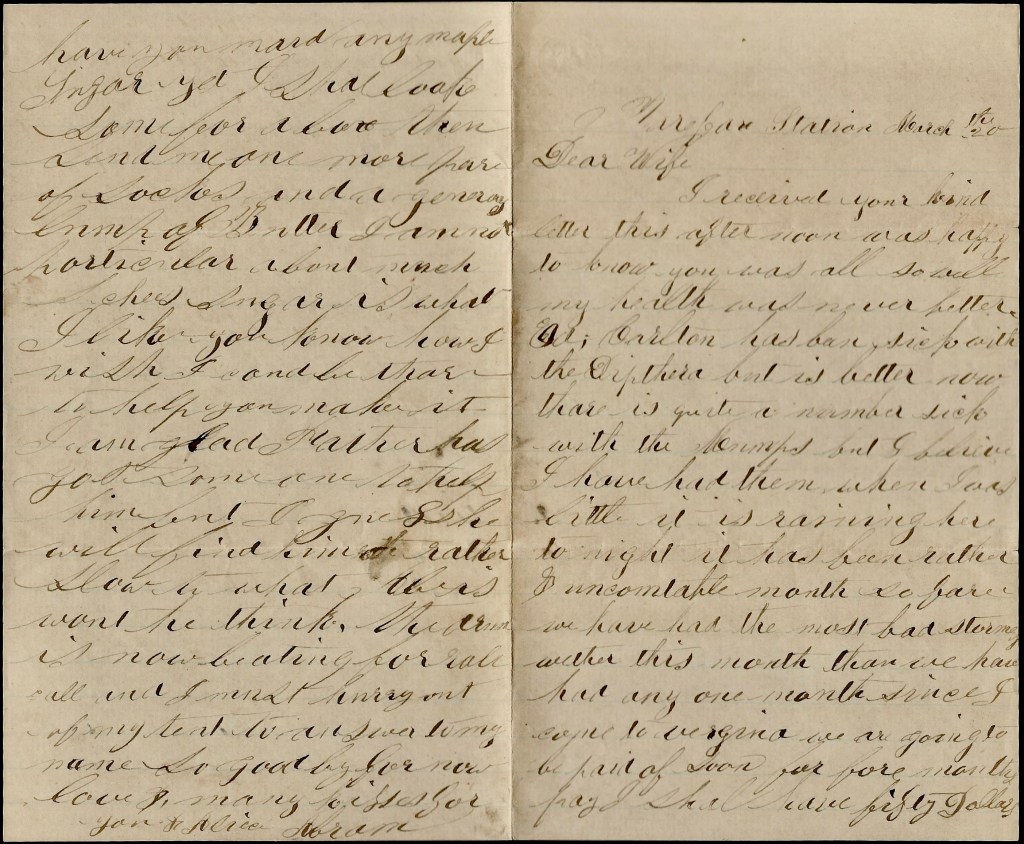 Station March the 20
Dear Wife
I received your kind
letter this after noon was happy
to know you was all so well
my health was never better
Ed, Carlton has ban sick with
the Dipthera but is better now
thare is quite a number sick
with the Mumps but I beleive
I have had them when I was
little it is raining here
to night it has been rather
& uncomtable month so fare
we have had the most bad stormy
wether this month than we have
had any one month since I
come to vergina we are going to
be paid of soon for fore months
pay I shal have fifty Dollars
have you maid any maple
Sugar yet I shal look
some for a box then
send me one more pare
of socks and a generay
lump of Butter I am not
particular about much
chees sugar is what
I like you know how I
wish I coud be thare
to help you make it
I am glad Father has
got some one to help
him but I guess he
will find him rather
slow is what
wont he think. the drum
is now beating for role
call and I must hurry out
of my tent to answer to my
name so good by for now
love & many kisses for
you & Alice Abram